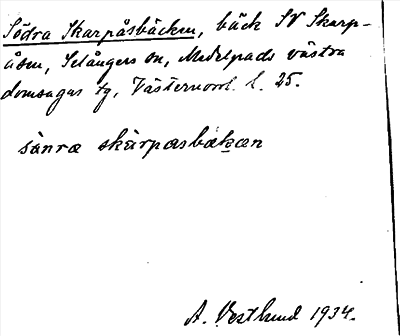 Södra Skarpåsbäcken, bäck SV Skarp-
åsen, Selångers sn, Medelpads västra
domsagas tg, Västernorrl. l. 25.
sänra skarpasbäkan
A. Vestlund 1934.